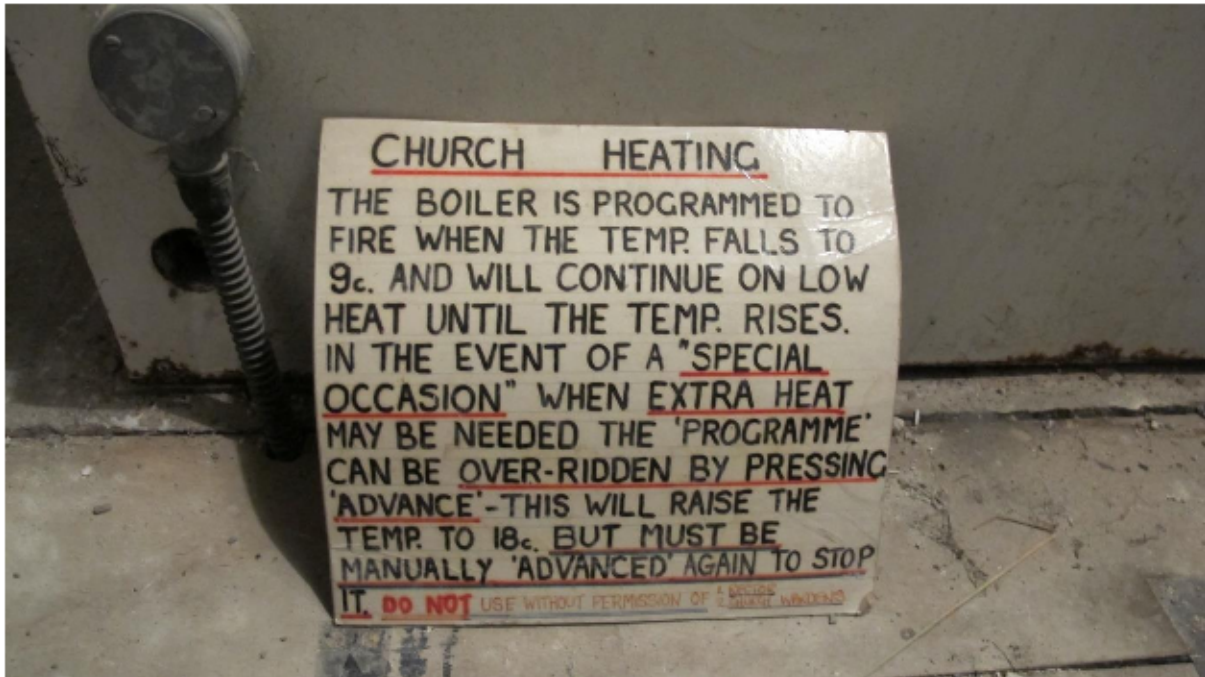 CHURCH HEATING
THE BOILER IS PROGRAMMED TO
FIRE WHEN THE TEMP. FALLS TO
9c. AND WILL CONTINUE ON LOW
HEAT UNTIL THE TEMP. RISES.
IN THE EVENT OF A "SPECIAL
OCCASION" WHEN EXTRA HEAT
MAY BE NEEDED THE 'PROGRAMME'
CAN BE OVER-RIDDEN BY PRESSING
'ADVANCE' - THIS WILL RAISE THE
TEMP. TO 18c. BUT MUST BE
MANUALLY 'ADVANCED' AGAIN TO STOP
IT. DO NOT USE WITHOUT PERMISSION OF 1. RECTOR
2. WARDENS